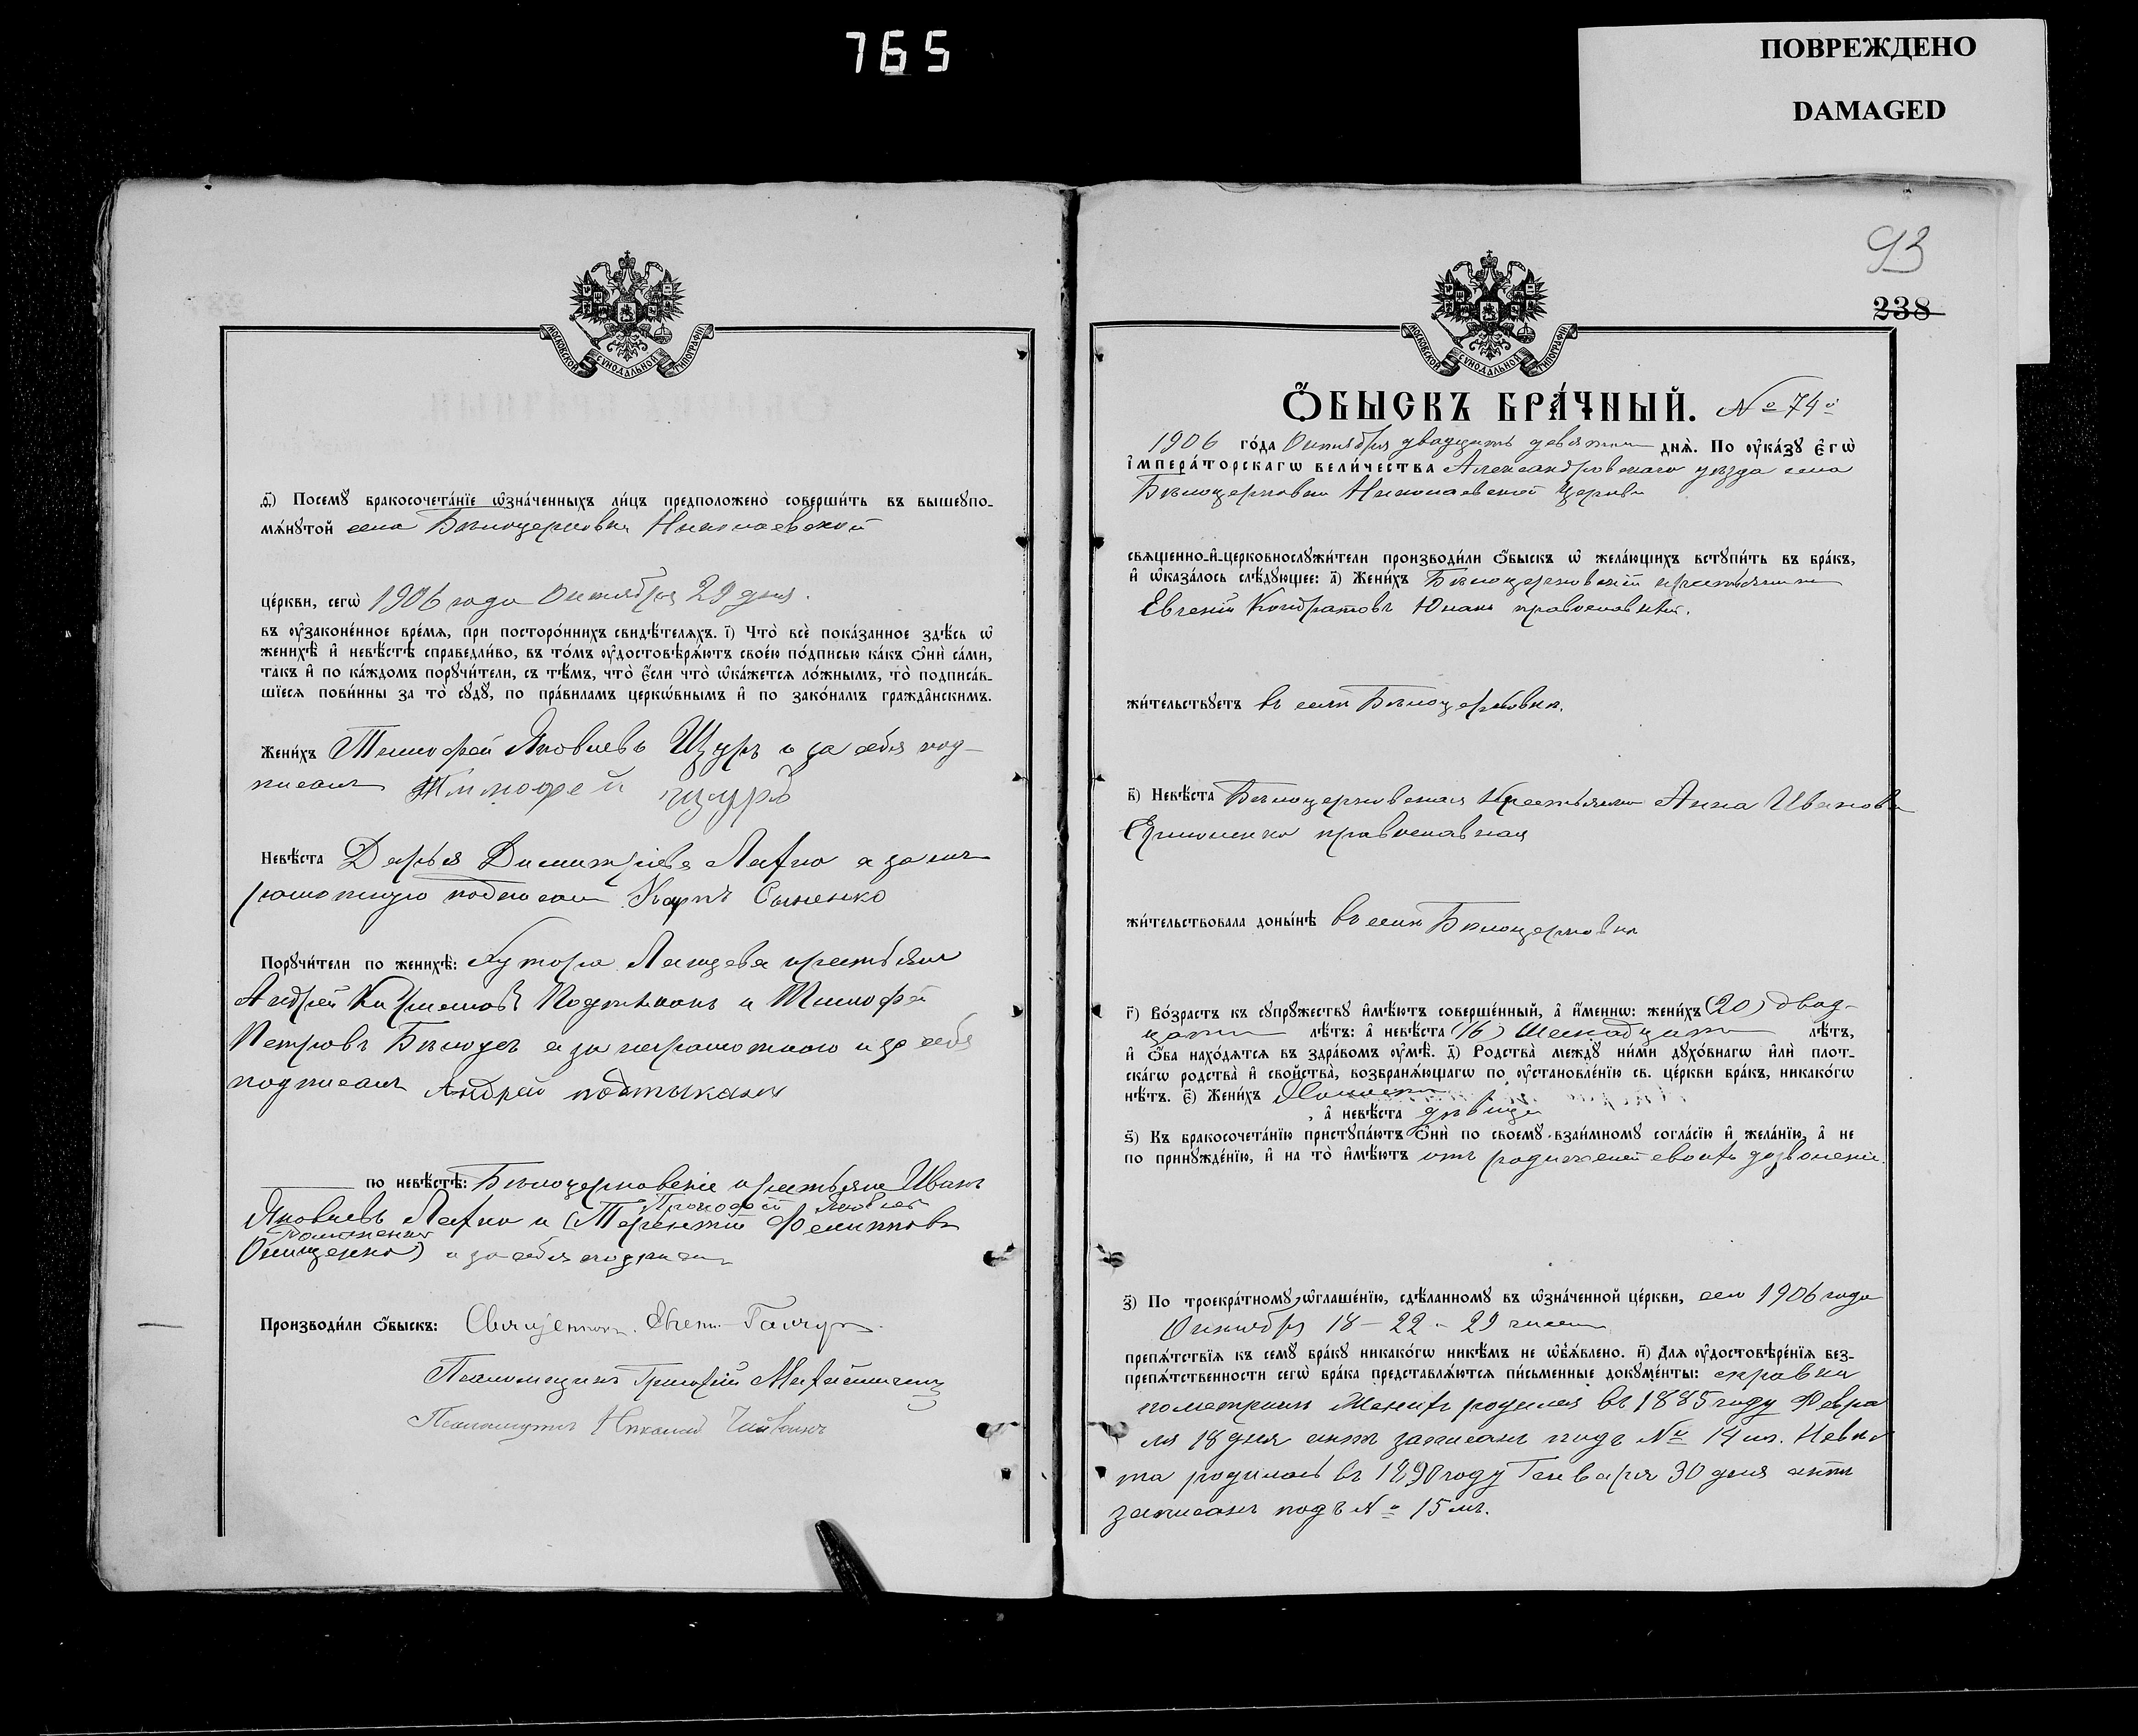 765
ПОВРЕЖДЕНО
DAMAGED
МОСКОВСКОЙ СѴНОДАЛЬНОЙ ТИПОГРАФІИ
д҃) Посемꙋ бракосочета́нїе ѡ҆зна́ченныхъ ли́цъ предположено̀ соверши́ть въ вышеꙋпо-
мѧ́нꙋтой села Бѣлоцерковки Николаевской
це́ркви, сегѡ̀ 1906 года Октября 29 дня.
въ ᲂу҆зако́ненное вре́мѧ, при посторо́ннихъ свидѣ́телѧхъ. і҃) Что̀ всѐ пока́занное здѣ́сь ѡ҆
женихѣ̀ и҆ невѣ́стѣ справедли́во, въ то́мъ ᲂу҆достовѣрѧ́ютъ свое́ю по́дписью ка́къ ѻ҆нѝ са́ми,
та́къ и҆ по ка́ждомъ порꙋчи́тели, съ тѣ́мъ, что̀ є҆́сли что̀ ѡ҆ка́жетсѧ ло́жнымъ, то̀ подписа́в-
шїесѧ пови́нны за то̀ сꙋдꙋ̀, по пра́виламъ церко́внымъ и҆ по зако́намъ гражда́нскимъ.
Жени́хъ Тимофей Яковлевъ Щуръ а за себя под-
писалъ Тимофей Щуръ
Невѣ́ста Дарья Димитріева Лахно а за неъ
грамотную подписалъ Карпъ Сыненко
Порꙋчи́тели по женихѣ̀: Хутора крестьяне
Андрей Подтыканъ и Тимофей
Петровъ Бѣлоусъ а за неграмотного и за себя
подписалъ Андрей подтыканъ
по невѣ́стѣ: Бѣлоцерковскіе крестьяне Иванъ
Прокофій Яковлев
Яковлевъ Лахно и (Терентій Филипповъ
Онищенко) и за себя подписали
Производи́ли ѻ҆́быскъ: Священникъ Евгеній
Псаломщикъ Григорій
Псаломщикъ Николай
93
238
МОСКОВСКОЙ СѴНОДАЛЬНОЙ ТИПОГРАФІИ
Ѻ҆́БЫСКЪ БРА́ЧНЫЙ. № 74й
1906 го́да Октября двадцать девятого днѧ̀. По ᲂу҆ка́зꙋ є҆гѡ̀
і҆мпера́торскагѡ вели́чества Александровскаго уѣзда села
Бѣлоцерковки Николаевской церкви
свѧще́нно-и҆-церковнослꙋжи́тели производи́ли ѻ҆́быскъ ѡ҆ жела́ющихъ встꙋпи́ть въ бра́къ,
и҆ ѡ҆каза́лось слѣ́дꙋющее: а҃) Жени́хъ Бѣлоцерковскій крестьянинъ
Евгеній Кондратовъ Юнакъ православный.
жи́тельствꙋетъ въ селѣ Бѣлоцерковкѣ.
в҃) Невѣ́ста Бѣлоцерковская Крестьянка Анна Иванова
Ермоленко православная
жи́тельствовала доны́нѣ въ селѣ Бѣлоцерковкѣ
г҃) Во́зрастъ къ сꙋпрꙋ́жествꙋ и҆мѣ́ютъ соверше́нный, а҆ и҆́меннѡ: жени́хъ (20) двад-
цати лѣ́тъ: а҆ невѣ́ста (16) Шестнадцати лѣ́тъ,
и҆ ѻ҆́ба нахо́дѧтсѧ въ здра́вомъ ᲂу҆мѣ̀. д҃) Родства̀ междꙋ̀ ни́ми дꙋхо́внагѡ и҆лѝ плот-
ска́гѡ родства̀ и҆ сво́йства̀, возбранѧ́ющагѡ по ᲂу҆становле́нїю св. це́ркви бра́къ, никако́гѡ
нѣ́тъ. є҃) Жени́хъ Холостъ
, а҆ невѣ́ста дѣвица
ѕ҃) Къ бракосочета́нїю пристꙋпа́ютъ ѻ҆нѝ по своемꙋ̀ взаи́мномꙋ согла́сїю и҆ жела́нїю, а҆ не
по принꙋжде́нїю, и҆ на то̀ и҆мѣ́ютъ отъ родителей своихъ дозволеніе.
з҃) По троекра́тномꙋ ѡ҆глаше́нїю, сдѣ́ланномꙋ въ ѡ҆зна́ченной це́ркви, сего 1906 года
Октября 18 - 22 - 29 чиселъ
препѧ́тствїѧ къ семꙋ̀ бра́кꙋ никако́гѡ никѣ́мъ не ѡ҆б̾ѧ́влено. и҃) Для ᲂу҆достовѣре́нїѧ без-
препѧ́тственности сегѡ̀ бра́ка представлѧ́ютсѧ пи́сьменные докꙋме́нты: справка
пометрикѣ Женихъ родился въ 1885 году Февра
ля 18 дня актъ записанъ подъ № 14 мъ. Невѣс
та родилась въ 1890 году Генваря 30 дня актъ
записанъ подъ № 15 мъ.